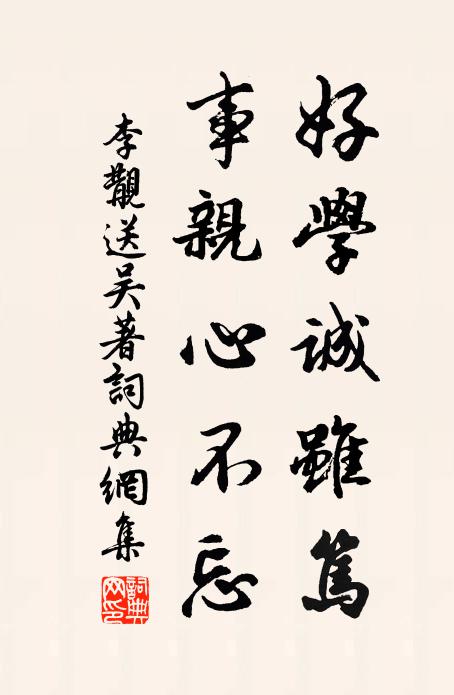 好學誠雖篤
事親心不忘
李覯送吳著詞典網集
詞典網印